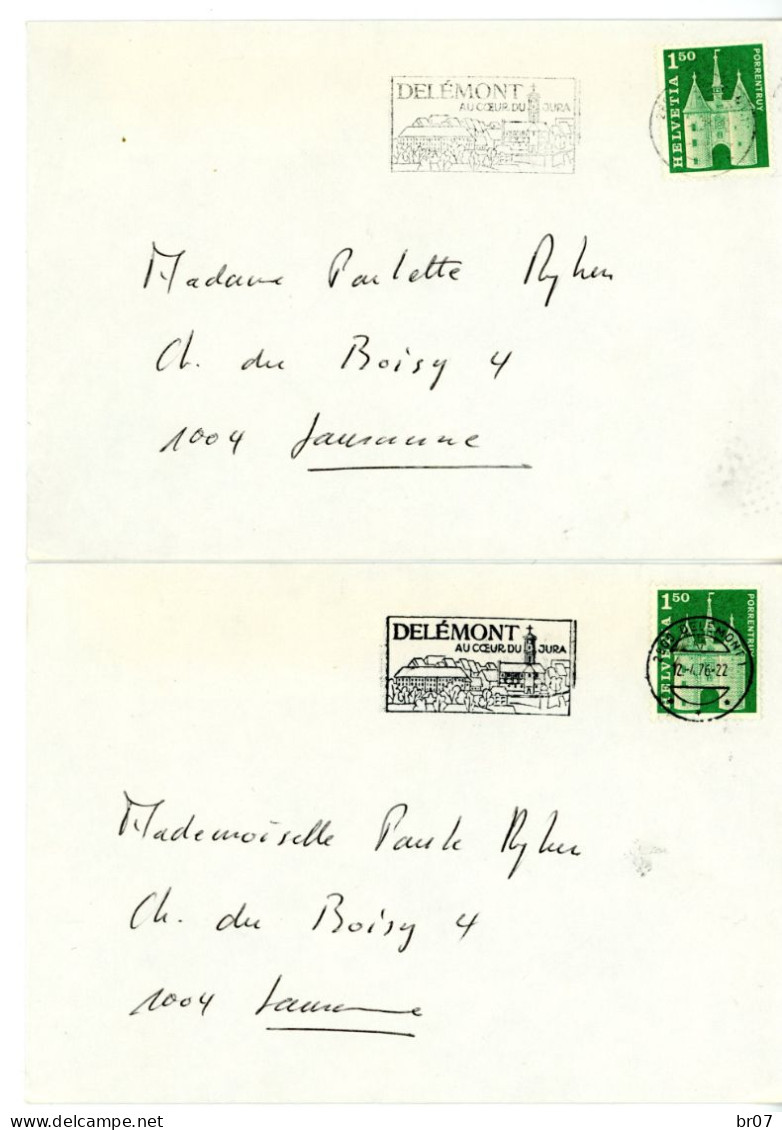 DELÉMONT
AU CŒUR DU JURA
HELVETIA 1 50 PORRENTRUY
Madame Paulette
Ch. du Boisy 4
1004 Lausanne
DELÉMONT
AU CŒUR DU JURA
HELVETIA 1 50 PORRENTRUY
DELÉMONT 1
76-22
Mademoiselle Paule
Ch. du Boisy 4
1004 Lausanne
delcampe.net
br07